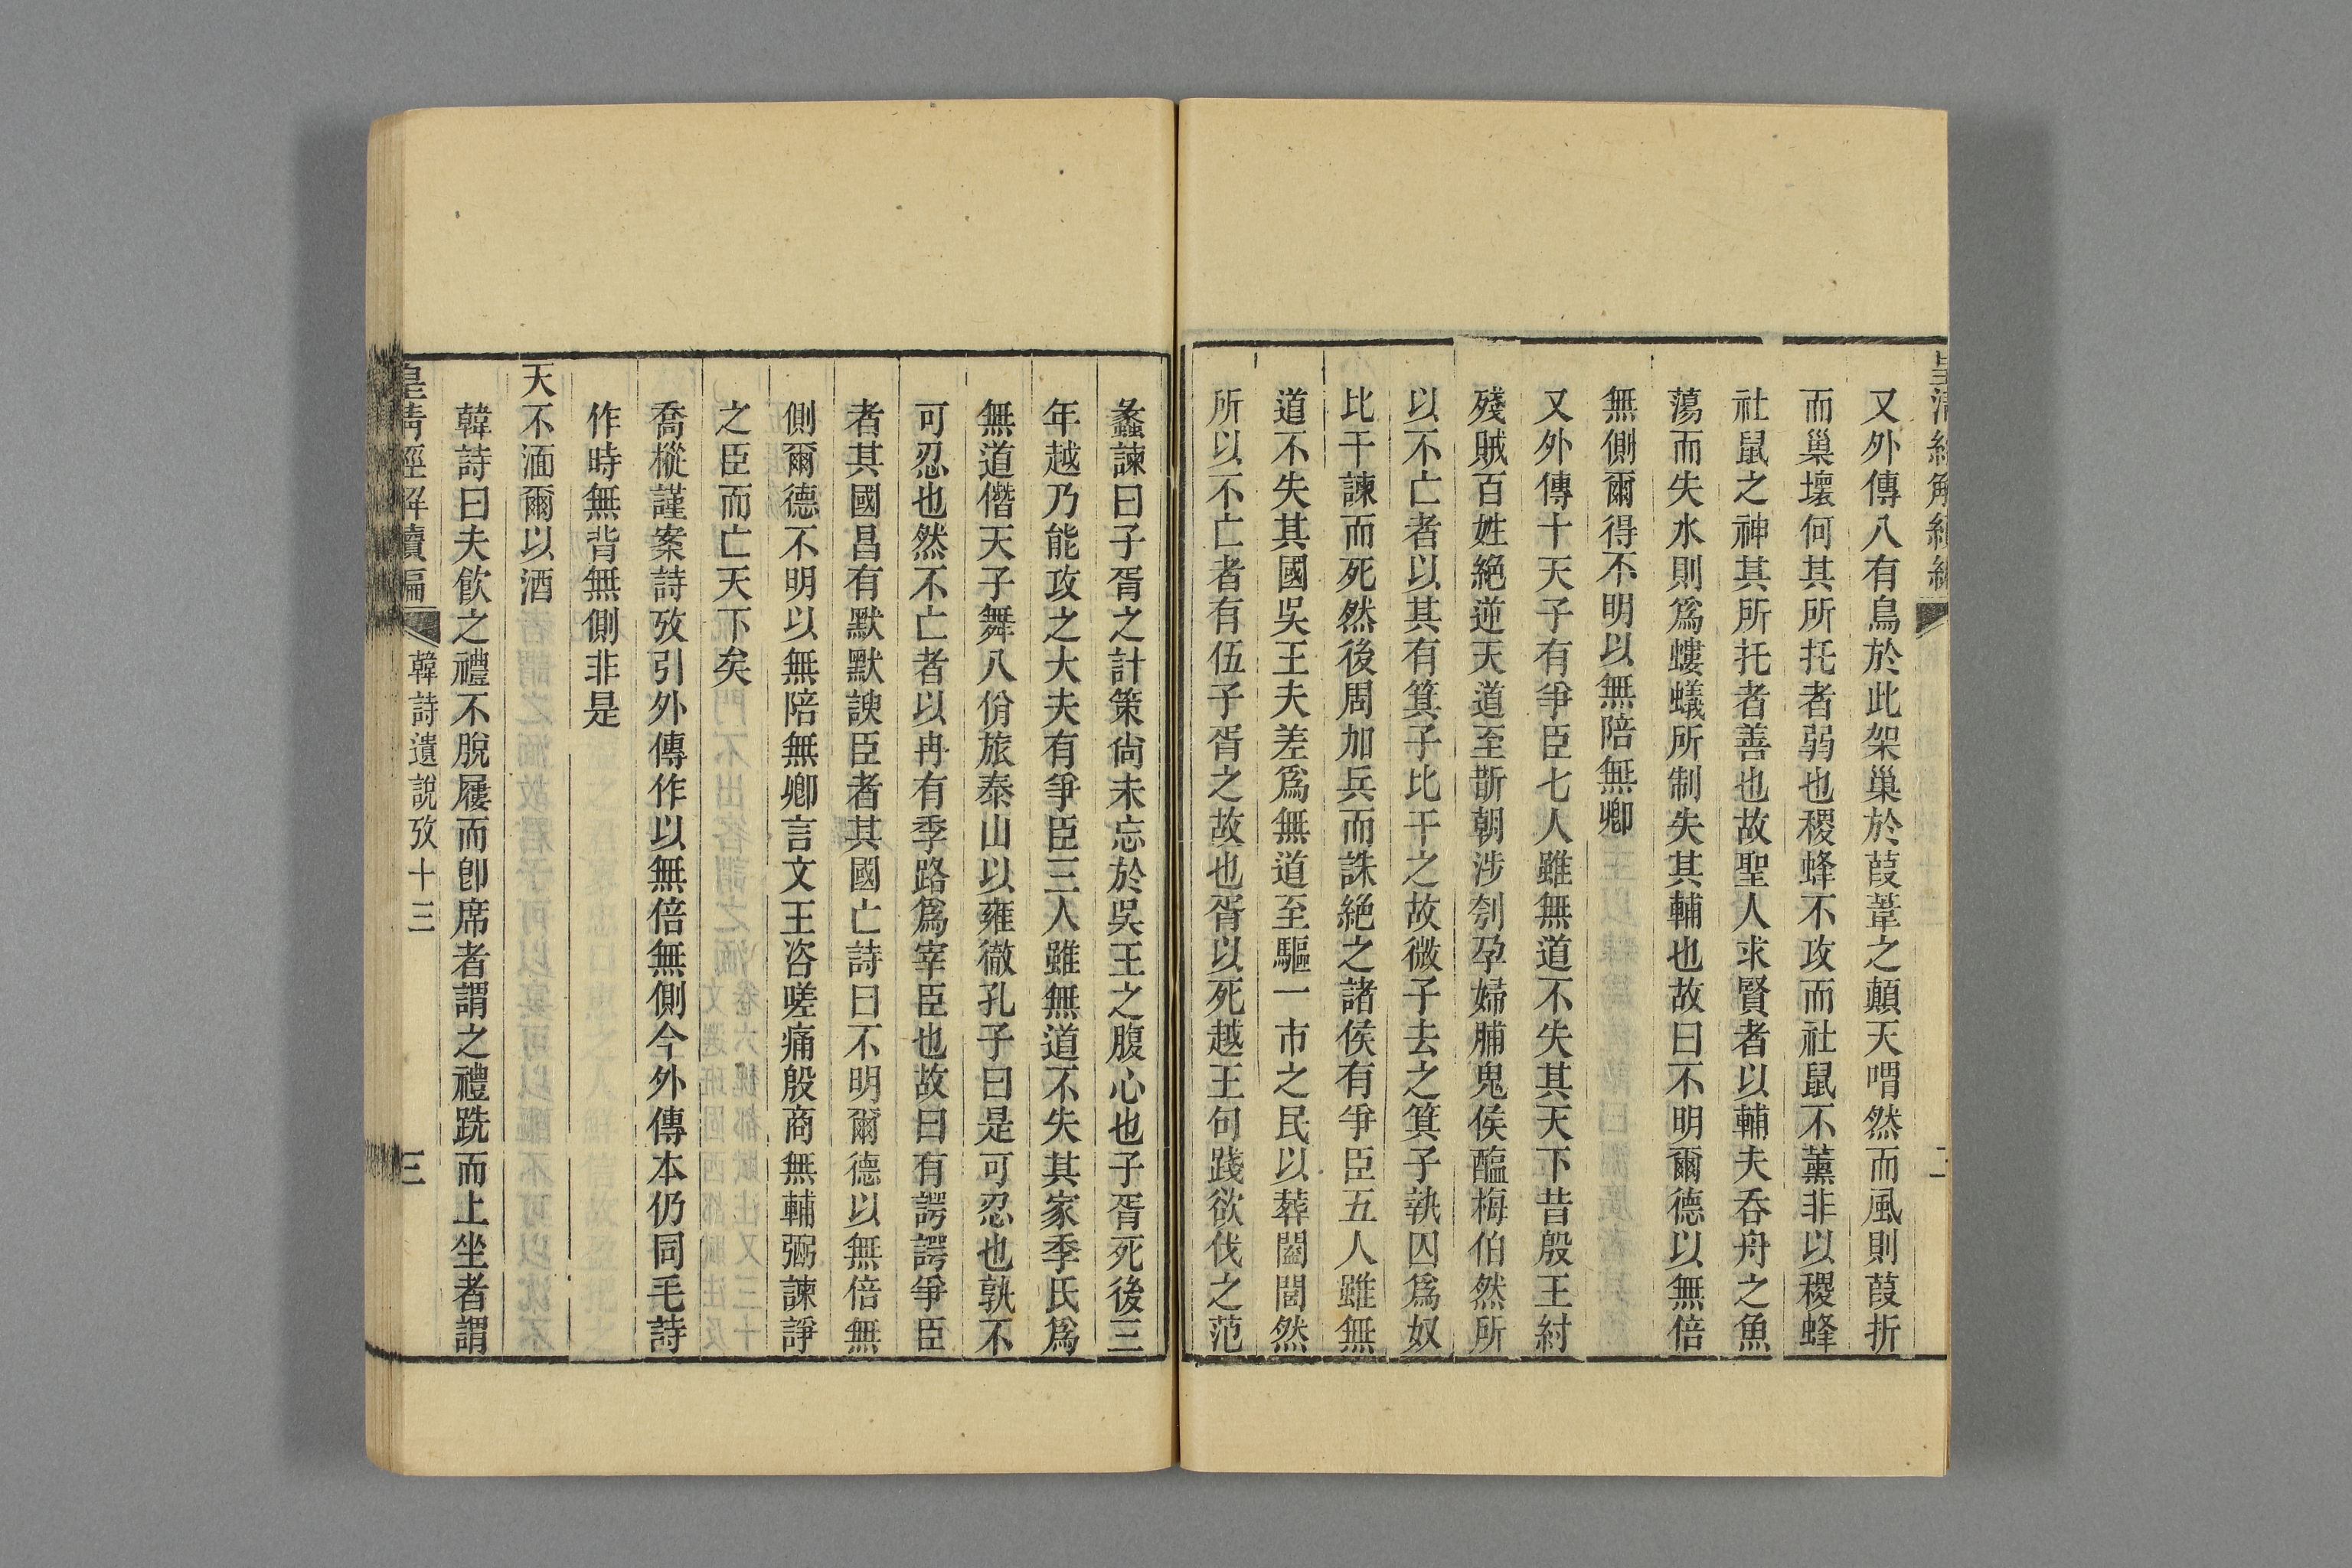 又外傳八有鳥於此架巢於葭葦之顛天喟然而風則葭折
而巢壞何其所托者弱也稷蜂不攻而社鼠不薰非以稷蜂
社鼠之神其所托者善也故聖人求賢者以輔夫吞舟之魚
蕩而失水則爲螻蟻所制失其輔也故曰不明爾德以無倍
無側爾得不明以無陪無卿
又外傳十天子有爭臣七人雖無道不失其天下昔殷王紂
殘賊百姓絶逆天道至斮朝涉刳孕婦脯鬼侯醢梅伯然所
以不亡者以其有箕子比干之故微子去之箕子執囚爲奴
比干諫而死然後周加兵而誅絶之諸侯有爭臣五人雖無
道不失其國吳王夫差爲無道至驅一市之民以葬闔閭然
所以不亡者有伍子胥之故也胥以死越王句踐欲伐之范
蠡諫曰子胥之計策尙未忘於吳王之腹心也子胥死後三
年越乃能攻之大夫有爭臣三人雖無道不失其家季氏爲
無道僭天子舞八佾旅泰山以雍徹孔子曰是可忍也孰不
可忍也然不亡者以冉有季路爲宰臣也故曰有諤諤爭臣
者其國昌有默默諛臣者其國亡詩曰不明爾德以無倍無
側爾德不明以無陪無卿言文王咨嗟痛殷商無輔弼諫諍
之臣而亡天下矣
喬樅謹案詩攷引外傳作以無倍無側今外傳本仍同毛詩
作時無背無側非是
天不湎爾以酒
韓詩曰夫飮之禮不脫屨而卽席者謂之禮跣而上坐者謂
皇淸經解續編
韓詩遺說攷十三
三